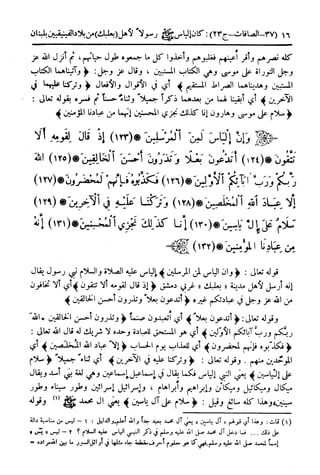 ١٦ (٣٧-الصافات-ج٢٣): كان إلياس ﷺ رسولاً لأهل (بعلبك) من بلاد الفينيقيين بلبنان
كله نصرهم وأقر أعينهم فغلبوهم وأخذوا كل ما جمعوه طول حياتهم، ثم أنزل الله عز
وجل التوراة على موسى وهي الكتاب المستبين، وقال عز وجل: ﴿وآتيناهما الكتاب
المستبين وهديناهما الصراط المستقيم﴾ أي في الأقوال والأفعال ﴿وتركنا عليهما في
الآخرين﴾ أي أبقينا لهما من بعدهما ذكراً جميلاً وثناءً حسناً ثم فسره بقوله تعالى:
﴿سلام على موسى وهارون إنا كذلك نجزي المحسنين إنهما من عبادنا المؤمنين﴾
وَإِنَّ إِلْيَاسَ لَمِنَ ٱلْمُرْسَلِينَ *(١٢٣) إِذْ قَالَ لِقَوْمِهِۦٓ أَلَا
تَتَّقُونَ *(١٢٤) أَتَدْعُونَ بَعْلًا وَتَذَرُونَ أَحْسَنَ ٱلْخَٰلِقِينَ *(١٢٥) ٱللَّهَ
رَبَّكُمْ وَرَبَّ ءَابَآئِكُمُ ٱلْأَوَّلِينَ *(١٢٦) فَكَذَّبُوهُ فَإِنَّهُمْ لَمُحْضَرُونَ *(١٢٧)
إِلَّا عِبَادَ ٱللَّهِ ٱلْمُخْلَصِينَ *(١٢٨) وَتَرَكْنَا عَلَيْهِ فِى ٱلْءَاخِرِينَ *(١٢٩)
سَلَٰمٌ عَلَىٰٓ إِلْ يَاسِينَ *(١٣٠) إِنَّا كَذَٰلِكَ نَجْزِى ٱلْمُحْسِنِينَ *(١٣١) إِنَّهُۥ
مِنْ عِبَادِنَا ٱلْمُؤْمِنِينَ *(١٣٢)
قوله تعالى: ﴿وإن الياس لمن المرسلين﴾ إلياس عليه الصلاة والسلام نبي رسول يقال
إنه أرسل لأهل مدينة «بعلبك» غربي دمشق ﴿إذ قال لقومه ألا تتقون﴾ أي ألا تخافون
من الله عز وجل في عبادتكم غيره ﴿أتدعون بعلاً وتذرون أحسن الخالقين﴾
وقوله تعالى: ﴿أتدعون بعلاً﴾ أي أتعبدون صنماً ﴿وتذرون أحسن الخالقين * الله
ربكم ورب آبائكم الأولين﴾ أي هو المستحق للعبادة وحده لا شريك له قال الله تعالى:
﴿فكذبوه فإنهم لمحضرون﴾ أي للعذاب يوم الحساب ﴿إلا عباد الله المخلصين﴾ أي
الموحدين منهم. وقوله تعالى: ﴿وتركنا عليه في الآخرين﴾ أي ثناءً جميلاً ﴿سلام
على إلياسين﴾ يعني النبي إلياس فكما يقال في إسماعيل إسماعين وهي لغة بني أسد ويقال
ميكال وميكائيل وميكائين وإبراهيم وأبراهام، وإسرائيل إسرائين وطور سيناء وطور
سينين وهذا كله سائغ وقيل: ﴿سلام على آل ياسين﴾ يعني آل محمد ﷺ (١) وقوله
(١) قلت: وهذا أي قولهم، آل ياسين، يعني آل محمد بعيد جداً والله أعلم، الدليل: ١ - ليس من مناسبة دالة